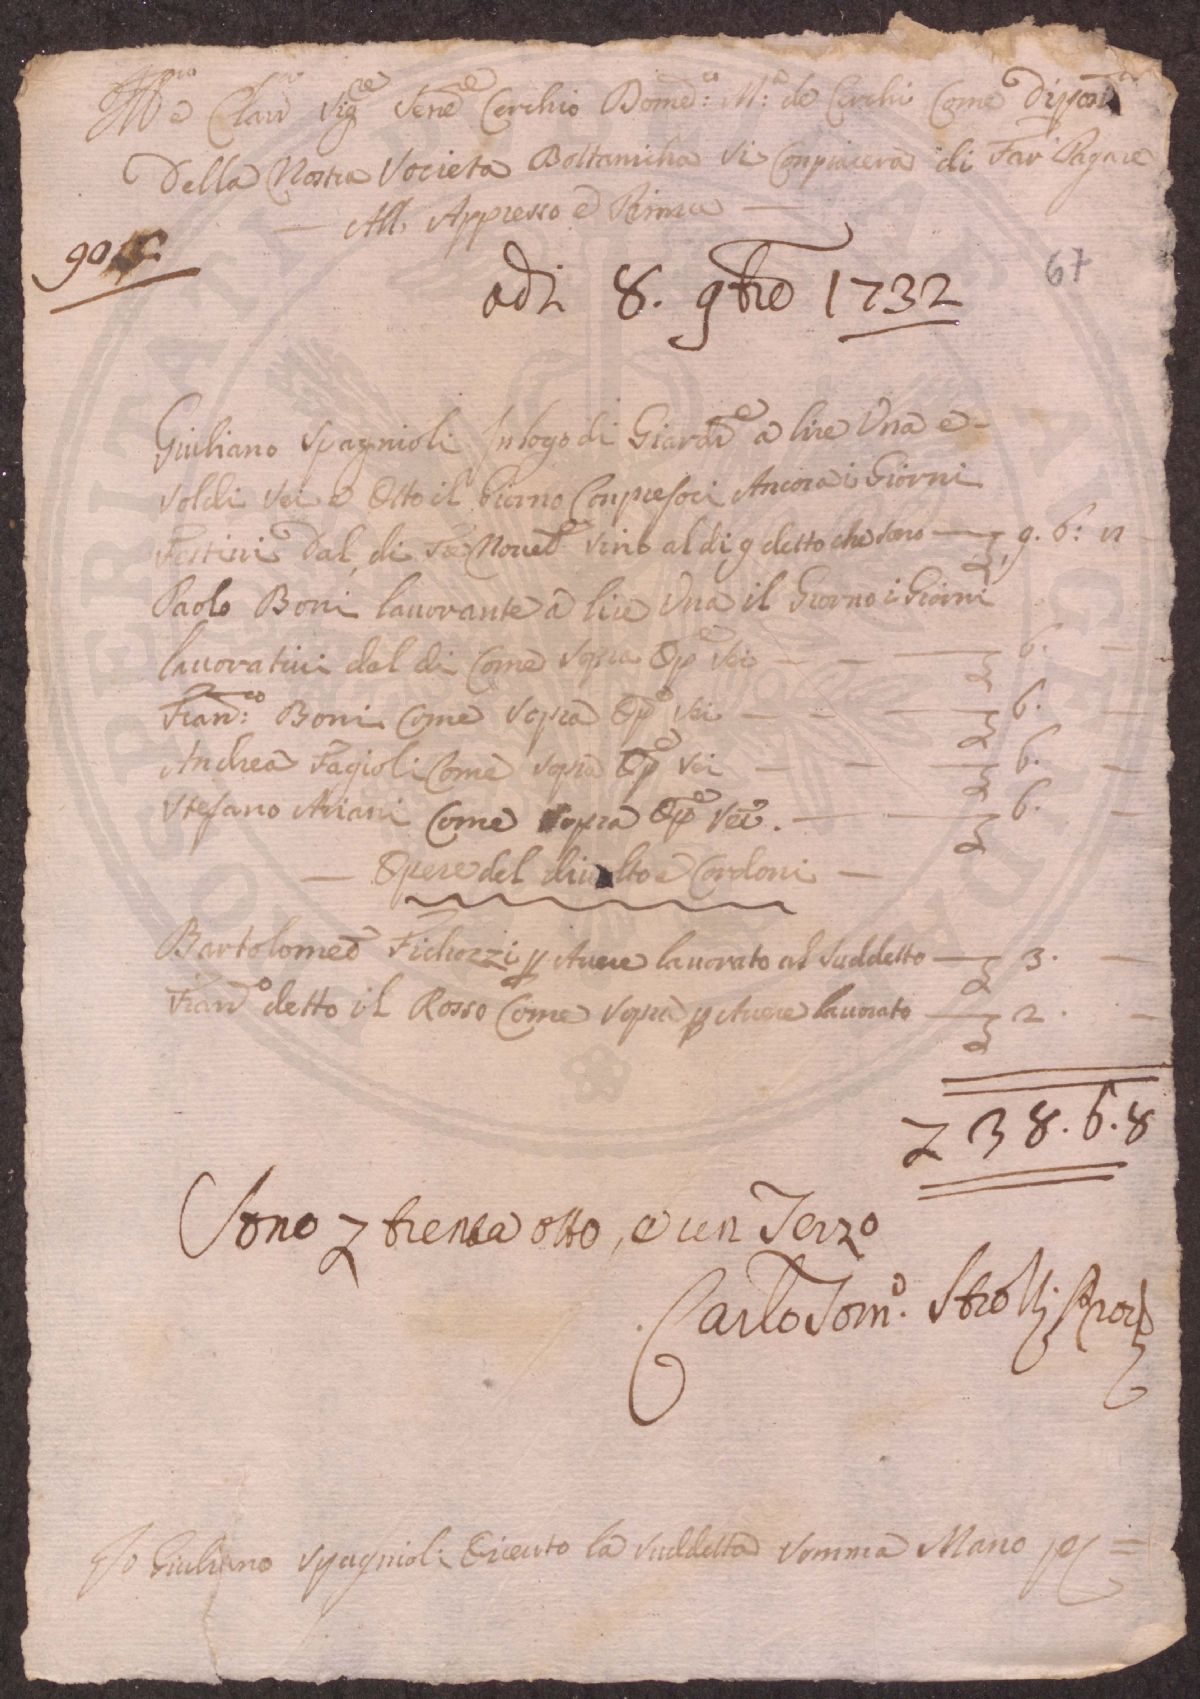 e Clari Sig.re Sen.re Cerchio Bomd.co M.a de Cerchi Come
Della Nostra Societa Bottanicha Si Conpiacera di Far Pagare
All. Appresso e Prima
90
67
adi 8. 9bre 1732
Giuliano Spagnioli In logo di Giardi.e a lire Una e
Soldi Sei e Otto il Giorno Conpresoci Ancora i Giorni
Festivi Dal di Noveb. Sino al di 9 detto che Sono — 9. 6: 8
Paolo Boni lavorante a lire Una il Giorno i Giorni
lavorativi dal di Come Sopra Op.e Sei — 6. —
Fran.co Boni Come Sopra Op.e Sei — 6. —
Andrea Fagioli Come Sopra Op.e Sei — 6. —
Stefano Ariani Come Sopra Op.e Sei. — 6. —
— Opere del divelto e Cordoni —
Bartolomeo Fichozzi p Avere lavorato al Suddetto — 3. —
Fran.o detto il Rosso Come Sopra p Avere lavorato — 2. —
38. 6. 8
Sono trenta otto, e un Terzo
Carlo Tom.o Strozzi
Io Giuliano Spagnioli O riceuto la suddetta Somma Mano
SOSPERITATI PUBLICAE